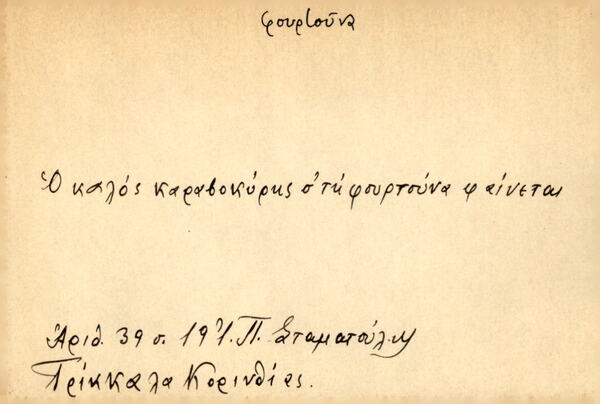 φουρτοῦνα
Ὁ καλός καραβοκύρης σ'τή φουρτούνα φαίνεται
Ἀριθ. 39 σ. 191. Π. Σταματούλη
Τρίκκαλα Κορινθίας.